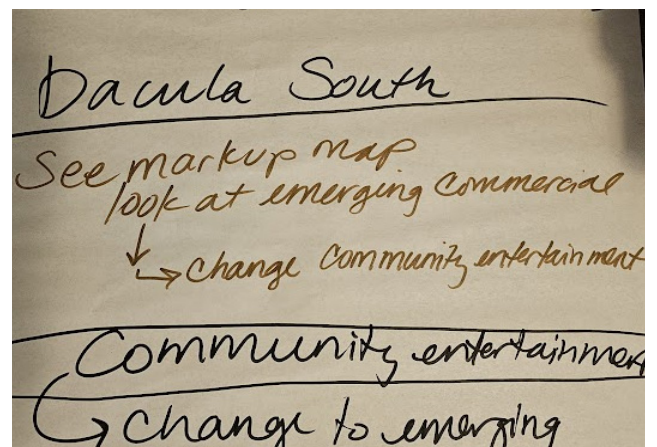 Dacula South
See markup map
look at emerging commercial
change community entertainment
Community entertainment
change to emerging